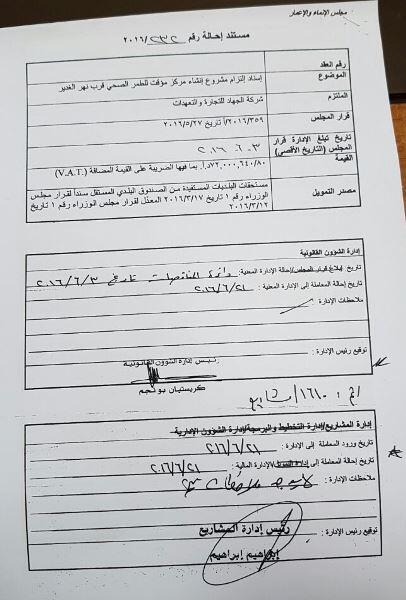 مجلس الإنماء والإعمار
مستند إحالة رقم ٢٠١٦/٢٣٢
رقم العقد
الموضوع إسناد إلتزام مشروع إنشاء مركز مؤقت للطمر الصحي قرب نهر الغدير
الملتزم شركة الجهاد للتجارة والتعهدات
قرار المجلس ٢٠١٦/٣٥٩/أ تاريخ ٢٠١٦/٥/٢٧
تاريخ تبلغ الإدارة قرار المجلس (التاريخ الأقصى) ٣ـ ٦ـ ٢٠١٦
القيمة ٧٢,٠٠٠,٦٤٠/٨٠د.أ. بما فيها الضريبة على القيمة المضافة (V.A.T.)
مصدر التمويل مستحقات البلديات المستفيدة من الصندوق البلدي المستقل سنداً لقرار مجلس
الوزراء رقم ١ تاريخ ٢٠١٦/٣/١٧ المعدّل لقرار مجلس الوزراء رقم ١ تاريخ
٢٠١٦/٣/١٢
إدارة الشؤون القانونية
تاريخ إبلاغ قرار المجلس/إحالة الإدارة المعنية: دائرة المناقصات تاريخ ٢٠١٦/٦/٣
تاريخ إحالة المعاملة إلى الإدارة المعنية: ٢٠١٦/٦/٢١
ملاحظات الإدارة:
توقيع رئيس الإدارة:
رئيس إدارة الشؤون القانونية
كريستيان بو نجم
إدارة المشاريع/إدارة التخطيط والبرمجة/إدارة الشؤون الإدارية
تاريخ ورود المعاملة إلى الإدارة: ٢٠١٦/٦/٢١
تاريخ إحالة المعاملة إلى الإدارة المالية: ٢٠١٦/٦/٢١
ملاحظات الإدارة: لا يوجد ملاحظات
توقيع رئيس الإدارة:
رئيس إدارة المشاريع
إبراهيم إبراهيم